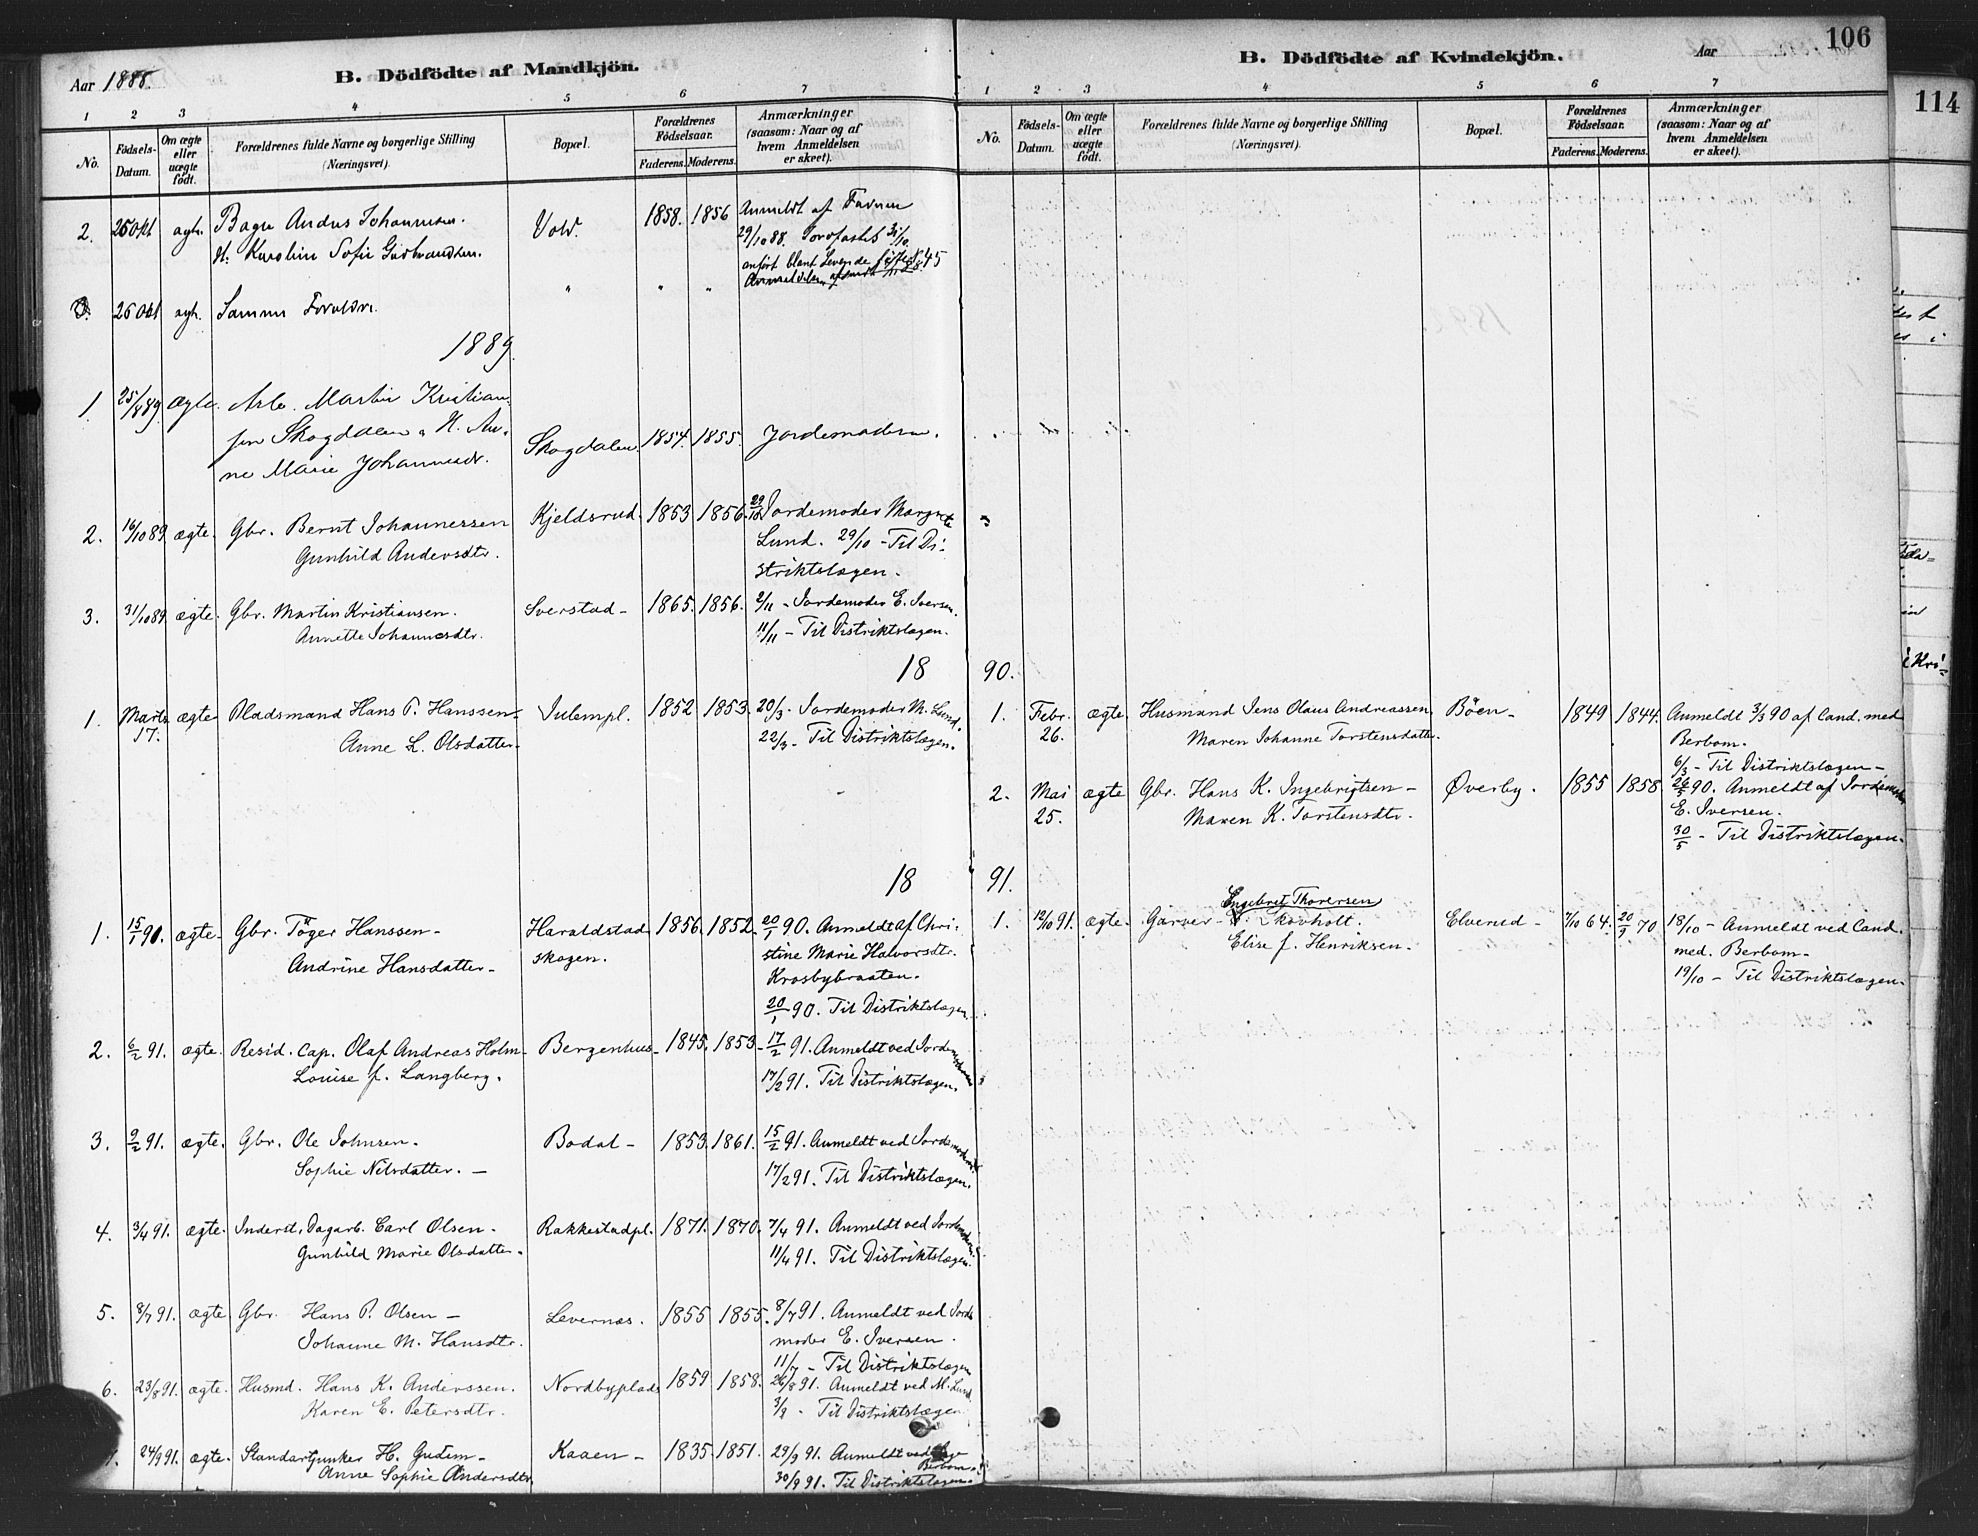 Aar 1888.
B. Dödfödte af Mandkjön.
1 2 3 4 5 6 7
No. Födsels-Datum. Om ægte eller uægte födt. Forældrenes fulde Navne og borgerlige Stilling (Næringsvei). Bopæl. Forældrenes Födselsaar. Faderens. Moderens. Anmærkninger (saasom: Naar og af hvem Anmeldelsen er skeet).
2. 25 Okt ægte. Johannesen. Vold. 1858. 1856 Anmeldt af Faderen
H: Karolin Sofie Gudbrandsen. 29/10 88.
anført blant Levende
26 Okt ægte. Samme Forældre. " " "
1889.
1 25/8 89. ægte. Arb. Martin Kristian-
sen Skogdalen & H. An- Skogdalen. 1854. 1855. Jordemoderen.
ne Marie Johannesdr.
2. 16/10 89 ægte. Gbr. Bernt Johannessen Kjeldsrud. 1853 1856. 29/10 Jordemoder Margrete
Gunhild Andersdtr. Lund. 29/10 - Til Di-
striktslægen.
3. 31/10 89 ægte. Gbr. Martin Kristiansen. Sverstad - 1865. 1856. 2/11 - Jordemoder E. Iversen.
Annette Johannesdtr. 11/11 - Til Distriktslægen.
18
1. Marts 17. ægte Pladsmand Hans P. Hanssen - Julempl. 1852 1853. 20/3 - Jordemoder M. Lund.
Anne L. Olsdatter. 22/3 - Til Distriktslægen.
18
1. 15/1 91. ægte - Gbr. Töger Hanssen - Haraldstad 1856. 1852. 20/1 90. Anmeldt af Chri-
Andrine Hansdatter - skogen. stine Marie Halvorsdtr.
Krosbybraaten.
20/1 90. Til Distriktslægen.
2. 6/2 91. ægte. Resid. Cap. Olaf Andreas Holm - Bergenhus - 1845. 1853 - 17/2 91. Anmeldt ved Jordemoderen
Louise f. Langberg. 17/2 91. Til Distriktslægen.
3. 9/2 91. ægte. Gbr. Ole Johnsen. Bodal - 1853. 1861. 15/2 91. Anmeldt ved Jordemoderen
Sophie Nilsdatter. - 17/2 91. Til Distriktslægen.
4. 3/4 91. ægte. Inderst, Dagarb. Carl Olsen - Rakkestadpl. 1871. 1870. 7/4 91. Anmeldt ved Jordemoderen
Gunhild Marie Olsdatter. 11/4 91. Til Distriktslægen.
5. 8/7 91. ægte Gbr. Hans P. Olsen - Levernæs. 1855 1855. 8/7 91. Anmeldt ved Jorde
Johanne M. Hansdtr. moder E. Iversen.
11/7 - Til Distriktslægen
6. 23/8 91. ægte. Husmd. Hans K. Anderssen. Nordbyplads 1859 1858. 26/8 91. Anmeldt ved M. Lund
Karen E. Petersdtr. Til Distriktslægen
24/9 91. ægte. Standartjunker H. Gudim - Kaaen - 1835. 1851. 29/9 91. Anmeldt ved
Anne Sophie Andersdtr Berbom.
30/9 91. Til Distriktslægen.
B. Dödfödte af Kvindekjön.
Aar
106
1 2 3 4 5 6 7
No. Födsels-Datum. Om ægte eller uægte födt. Forældrenes fulde Navne og borgerlige Stilling (Næringsvei). Bopæl. Forældrenes Födselsaar. Faderens. Moderens. Anmærkninger (saasom: Naar og af hvem Anmeldelsen er skeet).
90.
1. Febr. 26. ægte. Husmand Jens Olaus Andreassen Böen - 1849 1844. Anmeldt 3/3 90 af Cand. med
Maren Johanne Torstensdatter. Berbom.
6/3 - Til Distriktslægen -
2. Mai 25. ægte Gbr. Hans K. Ingebrigtsen - Øverby. 1855 1858. 26/5 90. Anmeldt af Jordemoder
Maren K. Torstensdtr. E. Iversen.
30/5 - Til Distriktslægen.
91.
Engebret Thoresen
1. 12/10 91. ægte. Garver - Skovholt. Elverud - 7/10 64. 20/9 70. 18/10 - Anmeldt ved Cand.
Elise f. Henriksen. med. Berbom.
19/10 - Til Distriktslægen.
114